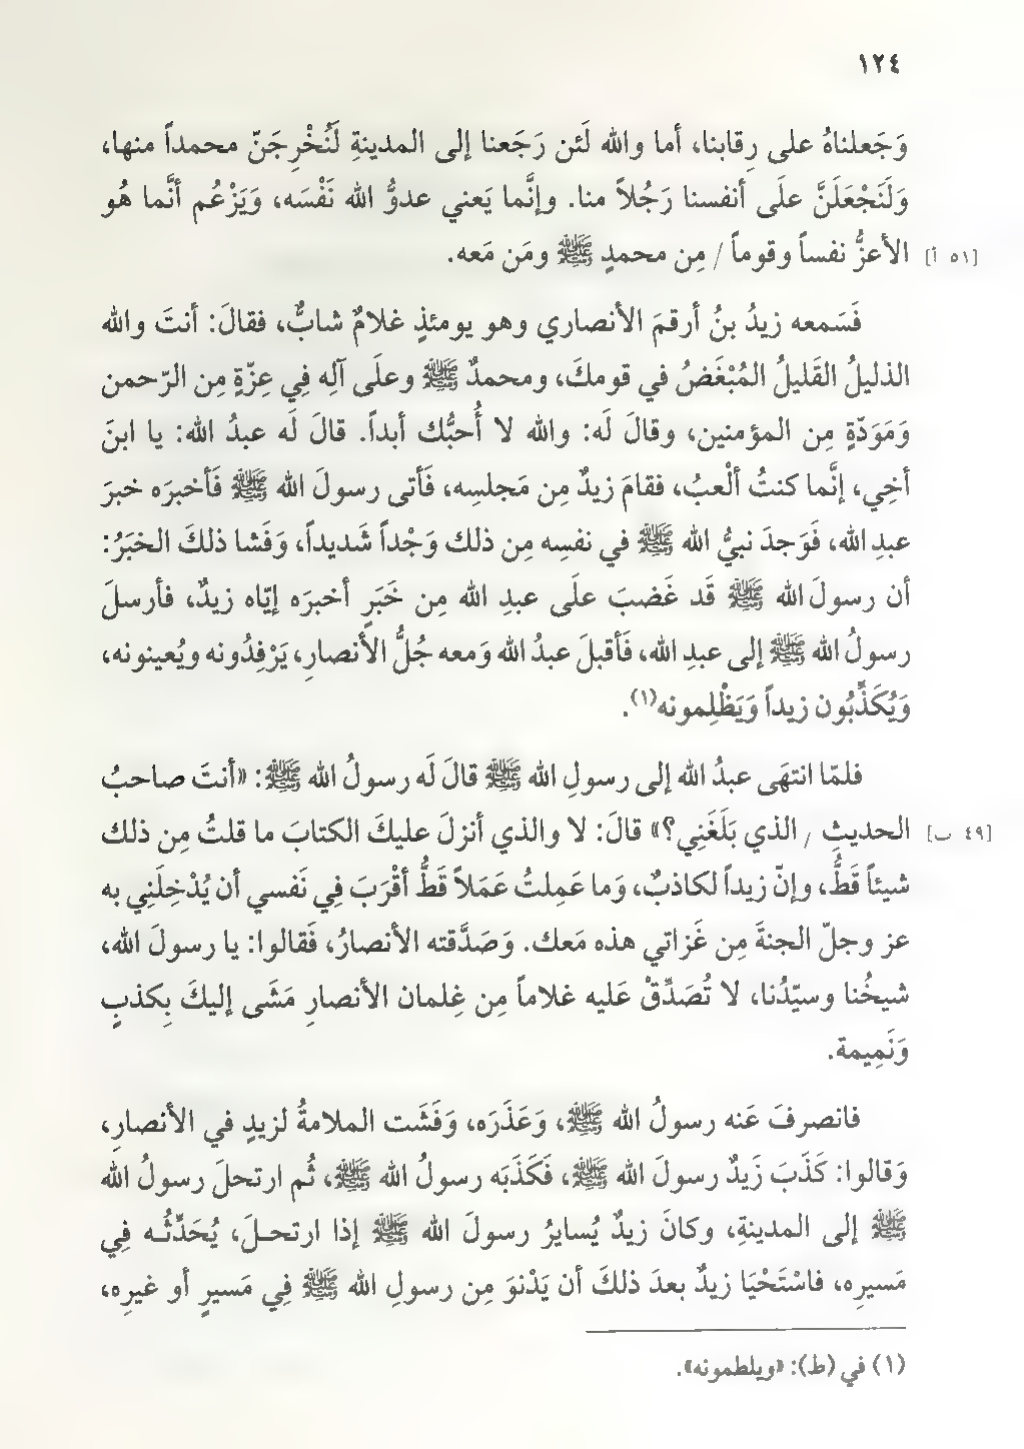 ١٢٤
وَجَعلناهُ على رِقابنا، أما والله لَئن رَجَعنا إلى المدينةِ لَنُخْرِجَنّ محمداً منها،
وَلَنَجْعَلَنَّ علَى أنفسنا رَجُلاً منا. وإنَّما يَعني عدوُّ الله نَفْسَه، وَيَزْعُم أنَّما هُو
[٥١ أ] الأعزُّ نفساً وقوماً / مِن محمدٍ ﷺ ومَن مَعه.
فَسَمعه زيدُ بنُ أرقمَ الأنصاري وهو يومئذٍ غلامٌ شابٌّ، فقالَ: أنتَ والله
الذليلُ القَليلُ المُبْغَضُ في قومكَ، ومحمدٌ ﷺ وعلَى آلِه فِي عِزّةٍ مِن الرّحمن
وَمَوَدّةٍ مِن المؤمنين، وقالَ لَه: والله لا أُحبُّك أبداً. قالَ لَه عبدُ الله: يا ابنَ
أخِي، إنَّما كنتُ ألْعبُ، فقامَ زيدٌ مِن مَجلسِه، فَأتى رسولَ الله ﷺ فَأخبرَه خبرَ
عبدِ الله، فَوَجدَ نبيُّ الله ﷺ في نفسِه مِن ذلك وَجْداً شَديداً، وَفَشا ذلكَ الخبَرُ:
أن رسولَ الله ﷺ قَد غَضبَ علَى عبدِ الله مِن خَبَرٍ أخبرَه إيّاه زيدٌ، فأرسلَ
رسولُ الله ﷺ إلى عبدِ الله، فَأقبلَ عبدُ الله وَمعه جُلُّ الأنصارِ، يَرْفِدُونه ويُعينونه،
وَيُكَذِّبُون زيداً وَيَظْلِمونه(١).
فلمّا انتهَى عبدُ الله إلى رسولِ الله ﷺ قالَ لَه رسولُ الله ﷺ: «أنتَ صاحبُ
[٤٩ ب] الحديثِ / الذي بَلَغَنِي؟» قالَ: لا والذي أنزلَ عليكَ الكتابَ ما قلتُ مِن ذلك
شيئاً قَطُّ، وإنّ زيداً لكاذبٌ، وَما عَمِلتُ عَمَلاً قَطُّ أقْرَبَ فِي نَفسي أن يُدْخِلَنِي به
عز وجلّ الجنةَ مِن غَزاتي هذه مَعك. وَصَدَّقته الأنصارُ، فَقالوا: يا رسولَ الله،
شيخُنا وسيّدُنا، لا تُصَدِّقْ عَليه غلاماً مِن غِلمان الأنصارِ مَشَى إليكَ بِكذبٍ
وَنَمِيمة.
فانصرفَ عَنه رسولُ الله ﷺ، وَعَذَرَه، وَفَشَت الملامةُ لزيدٍ في الأنصارِ،
وَقالوا: كَذَبَ زَيدٌ رسولَ الله ﷺ، فَكَذَبَه رسولُ الله ﷺ، ثُم ارتحلَ رسولُ الله
ﷺ إلى المدينةِ، وكانَ زيدٌ يُسايرُ رسولَ الله ﷺ إذا ارتحـلَ، يُحَدِّثُـه فِي
مَسيرِه، فاسْتَحْيَا زيدٌ بعدَ ذلكَ أن يَدْنوَ مِن رسولِ الله ﷺ فِي مَسيرٍ أو غيرِه،
(١) في (ط): «ويلطمونه».